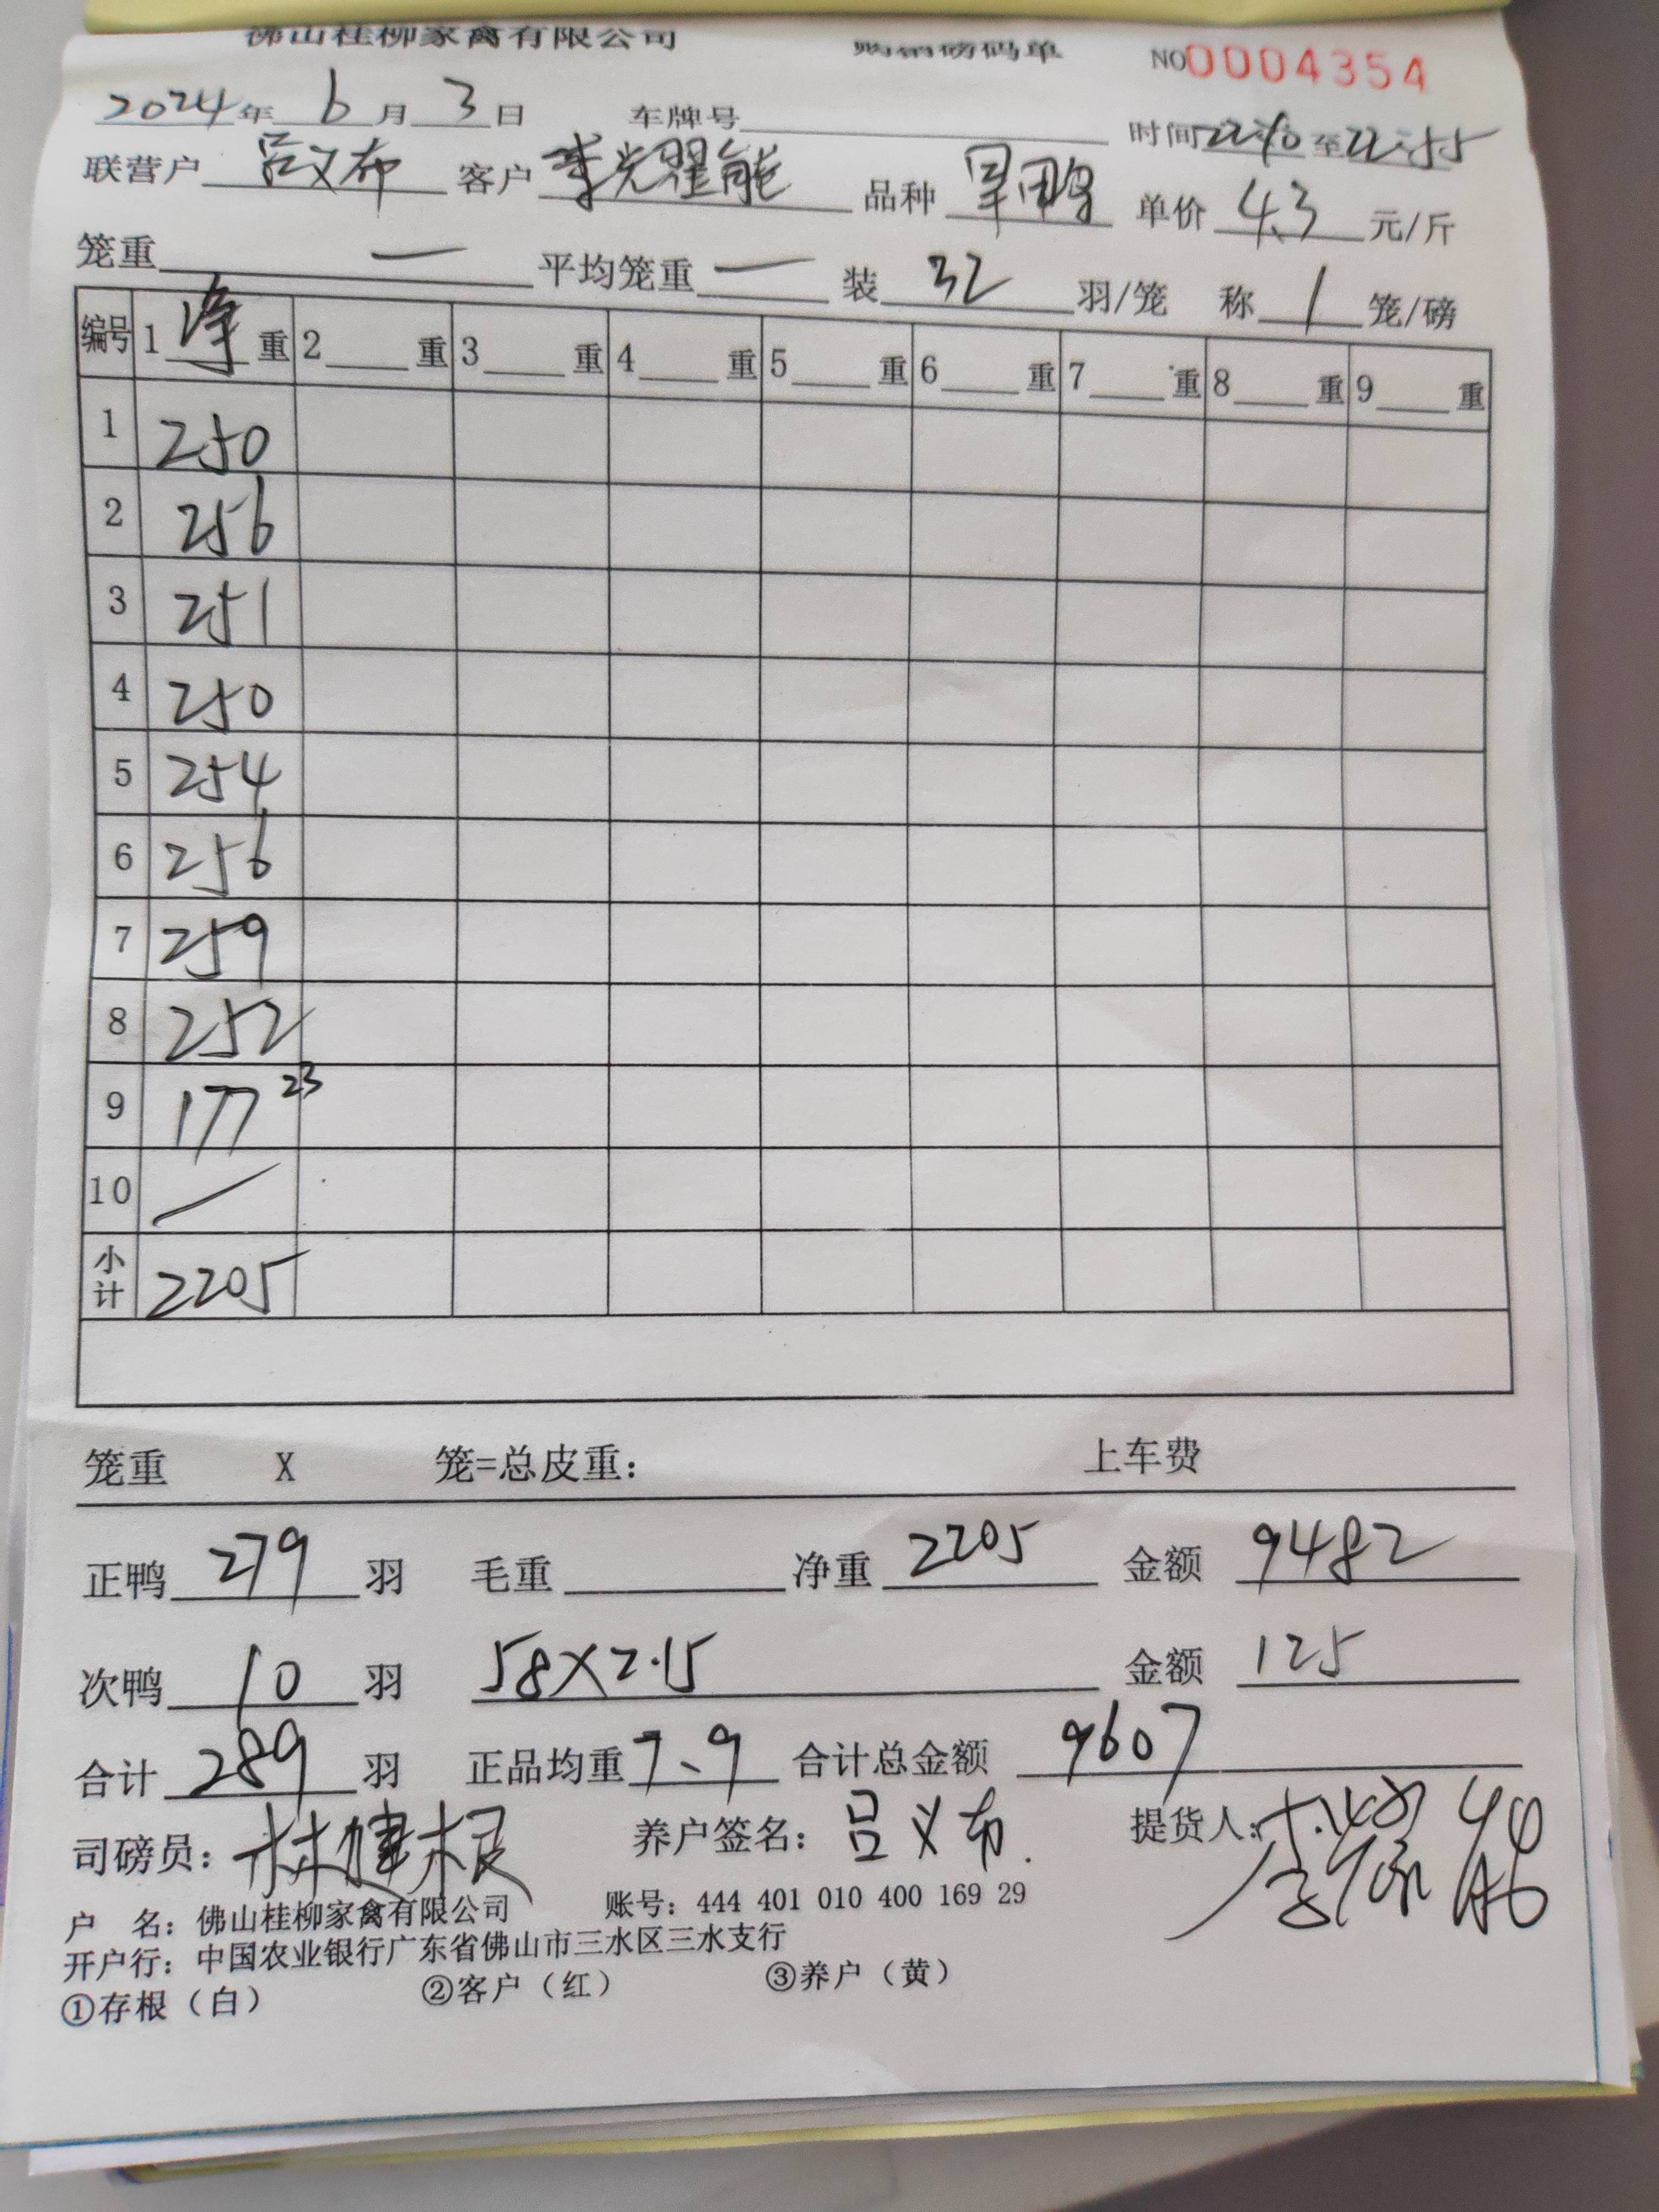 佛山桂柳家禽有限公司 购销磅码单 NO 0004354
2024年 6月 3日 车牌号 时间 22:10 至 22:55
联营户 吕义布 客户 李光耀能 品种 旱鸭 单价 4.3 元/斤
笼重 一 平均笼重 一 装 32 羽/笼 称 1 笼/磅
编号 1 净 重 2 重 3 重 4 重 5 重 6 重 7 重 8 重 9 重
1 250
2 256
3 251
4 250
5 254
6 256
7 259
8 252
9 177 23
10 /
小计 2205
笼重 X 笼=总皮重: 上车费
正鸭 279 羽 毛重 净重 2205 金额 9482
次鸭 10 羽 58×2.15 金额 125
合计 289 羽 正品均重 7.9 合计总金额 9607
司磅员: 林健根 养户签名: 吕义布. 提货人:
户 名: 佛山桂柳家禽有限公司 账号: 444 401 010 400 169 29
开户行: 中国农业银行广东省佛山市三水区三水支行
①存根(白) ②客户(红) ③养户(黄)